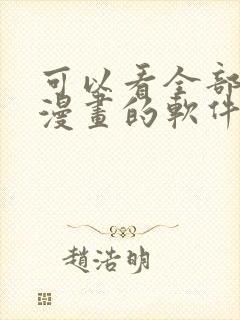 可以看全部
漫畫的軟件
趙浩明